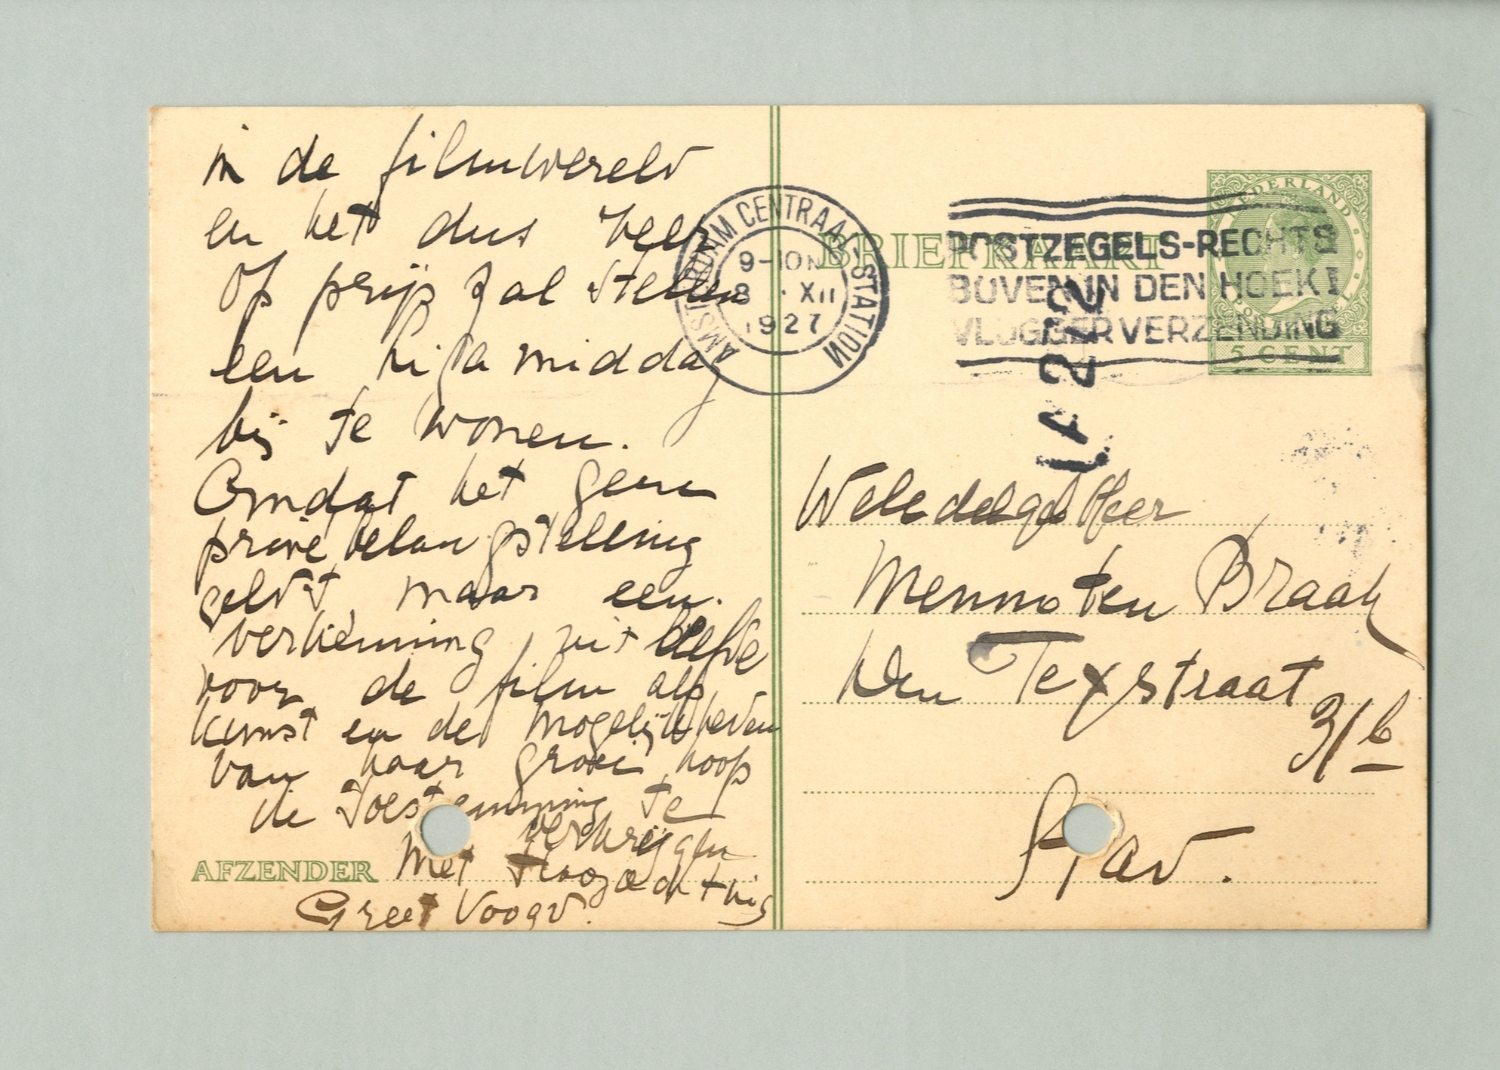 in de filmwereld
en het dus zeer
op prijs zal stellen
een liga middag
bij te wonen.
Omdat het geen
privé belangstelling
geldt, maar een
verkenning uit liefde
voor de film als
kunst en de mogelijkheden
van haar groei, hoop
de toestemming te
verkrijgen
Met Hoogachting
Greet Voogd.
AFZENDER
AMSTERDAM CENTRAAL STATION
9-10N
8 XII
1927
BRIEFKAART
POSTZEGELS-RECHTS
BOVEN IN DEN HOEK!
VLUGGER VERZENDING
NEDERLAND
5 CENT
A 212
Weledelgeb Heer
Menno ten Braak
Den Texstraat
31 b
Stad.